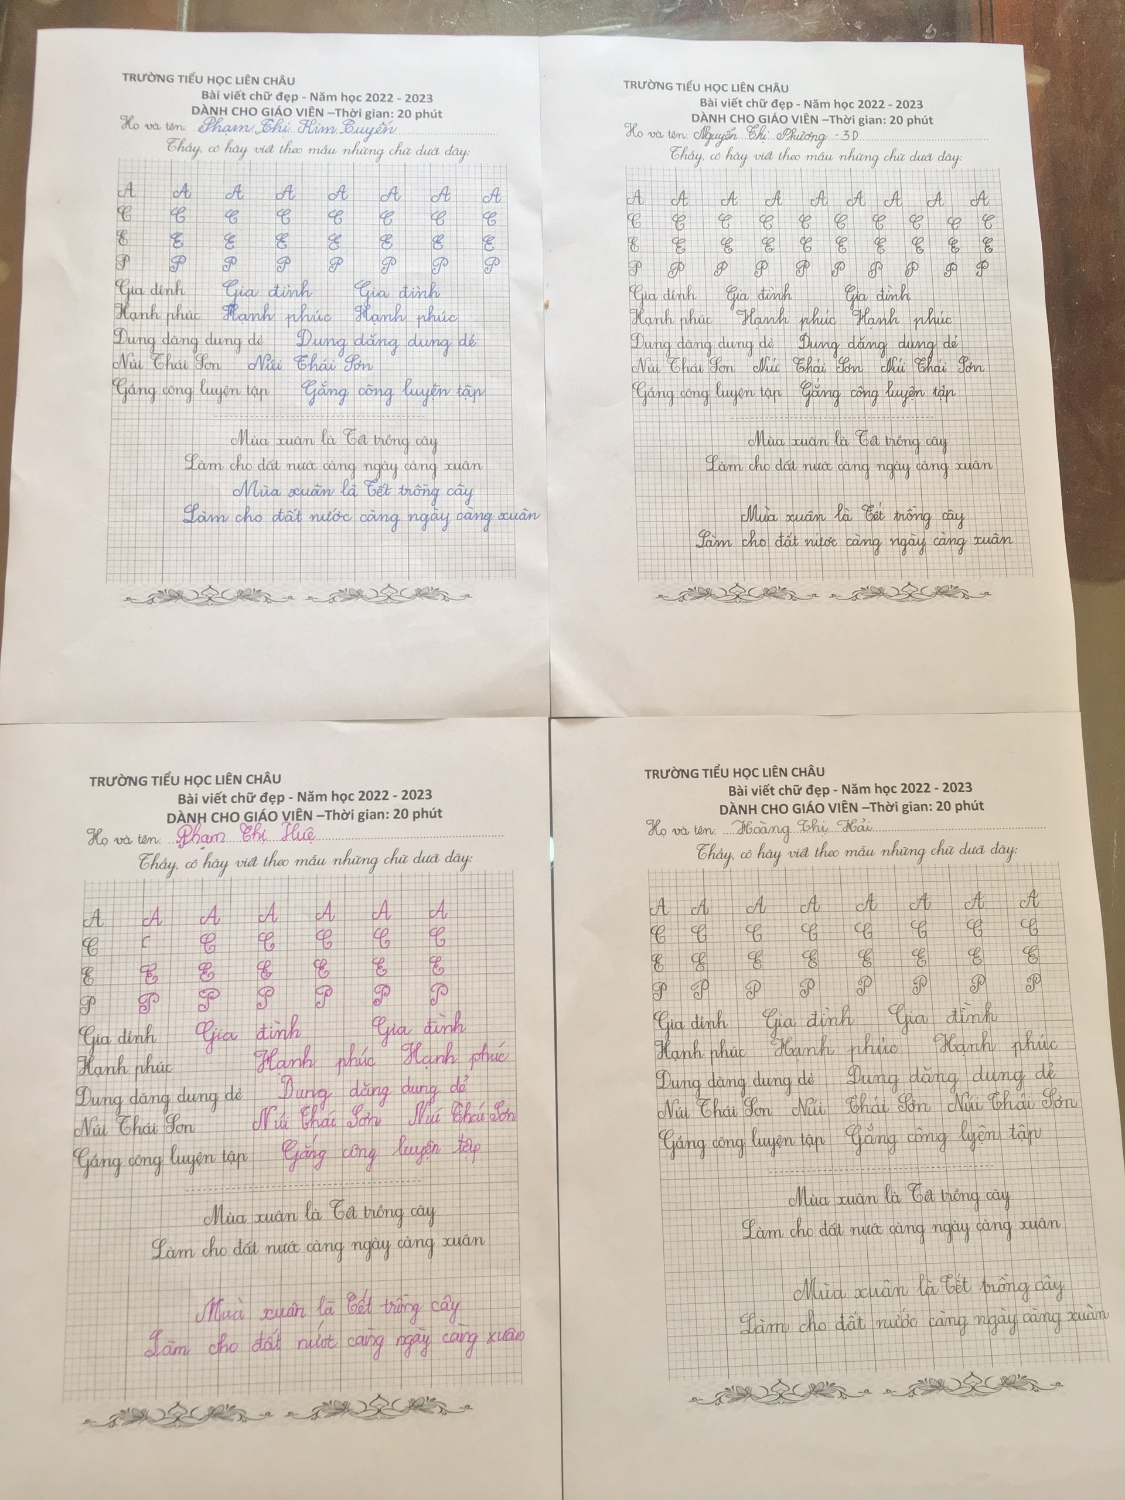 TRƯỜNG TIỂU HỌC LIÊN CHÂU
Bài viết chữ đẹp - Năm học 2022 - 2023
DÀNH CHO GIÁO VIÊN –Thời gian: 20 phút
Họ và tên: Phạm Thị Kim Tuyến
Thầy, cô hãy viết theo mẫu những chữ dưới đây:
A A A A A A A A
C C C C C C C C
E E E E E E E E
P P P P P P P P
Gia đình Gia đình Gia đình
Hạnh phúc Hạnh phúc Hạnh phúc
Dung dăng dung dẻ Dung dăng dung dẻ
Núi Thái Sơn Núi Thái Sơn
Gắng công luyện tập Gắng công luyện tập
Mùa xuân là Tết trồng cây
Làm cho đất nước càng ngày càng xuân
Mùa xuân là Tết trồng cây
Làm cho đất nước càng ngày càng xuân
TRƯỜNG TIỂU HỌC LIÊN CHÂU
Bài viết chữ đẹp - Năm học 2022 - 2023
DÀNH CHO GIÁO VIÊN –Thời gian: 20 phút
Họ và tên: Nguyễn Thị Phương - 3D
Thầy, cô hãy viết theo mẫu những chữ dưới đây:
A A A A A A A A A
C C C C C C C C C C
E E E E E E E E E E
P P P P P P P P P P
Gia đình Gia đình Gia đình
Hạnh phúc Hạnh phúc Hạnh phúc
Dung dăng dung dẻ Dung dăng dung dẻ
Núi Thái Sơn Núi Thái Sơn Núi Thái Sơn
Gắng công luyện tập Gắng công luyện tập
Mùa xuân là Tết trồng cây
Làm cho đất nước càng ngày càng xuân
Mùa xuân là Tết trồng cây
Làm cho đất nước càng ngày càng xuân
TRƯỜNG TIỂU HỌC LIÊN CHÂU
Bài viết chữ đẹp - Năm học 2022 - 2023
DÀNH CHO GIÁO VIÊN –Thời gian: 20 phút
Họ và tên: Phạm Thị Huệ
Thầy, cô hãy viết theo mẫu những chữ dưới đây:
A A A A A A A
C C C C C C C
E E E E E E E
P P P P P P P
Gia đình Gia đình Gia đình
Hạnh phúc Hạnh phúc Hạnh phúc
Dung dăng dung dẻ Dung dăng dung dẻ
Núi Thái Sơn Núi Thái Sơn Núi Thái Sơn
Gắng công luyện tập Gắng công luyện tập
Mùa xuân là Tết trồng cây
Làm cho đất nước càng ngày càng xuân
Muà xuân là Tết trồng cây
Làm cho đất nước càng ngày càng xuân
TRƯỜNG TIỂU HỌC LIÊN CHÂU
Bài viết chữ đẹp - Năm học 2022 - 2023
DÀNH CHO GIÁO VIÊN –Thời gian: 20 phút
Họ và tên: Hoàng Thị Hải
Thầy, cô hãy viết theo mẫu những chữ dưới đây:
A A A A A A A A
C C C C C C C C
E E E E E E E E
P P P P P P P P
Gia đình Gia đình Gia đình
Hạnh phúc Hạnh phúc Hạnh phúc
Dung dăng dung dẻ Dung dăng dung dẻ
Núi Thái Sơn Núi Thái Sơn Núi Thái Sơn
Gắng công luyện tập Gắng công lyện tập
Mùa xuân là Tết trồng cây
Làm cho đất nước càng ngày càng xuân
Mùa xuân là Tết trồng cây
Làm cho đất nước càng ngày càng xuân